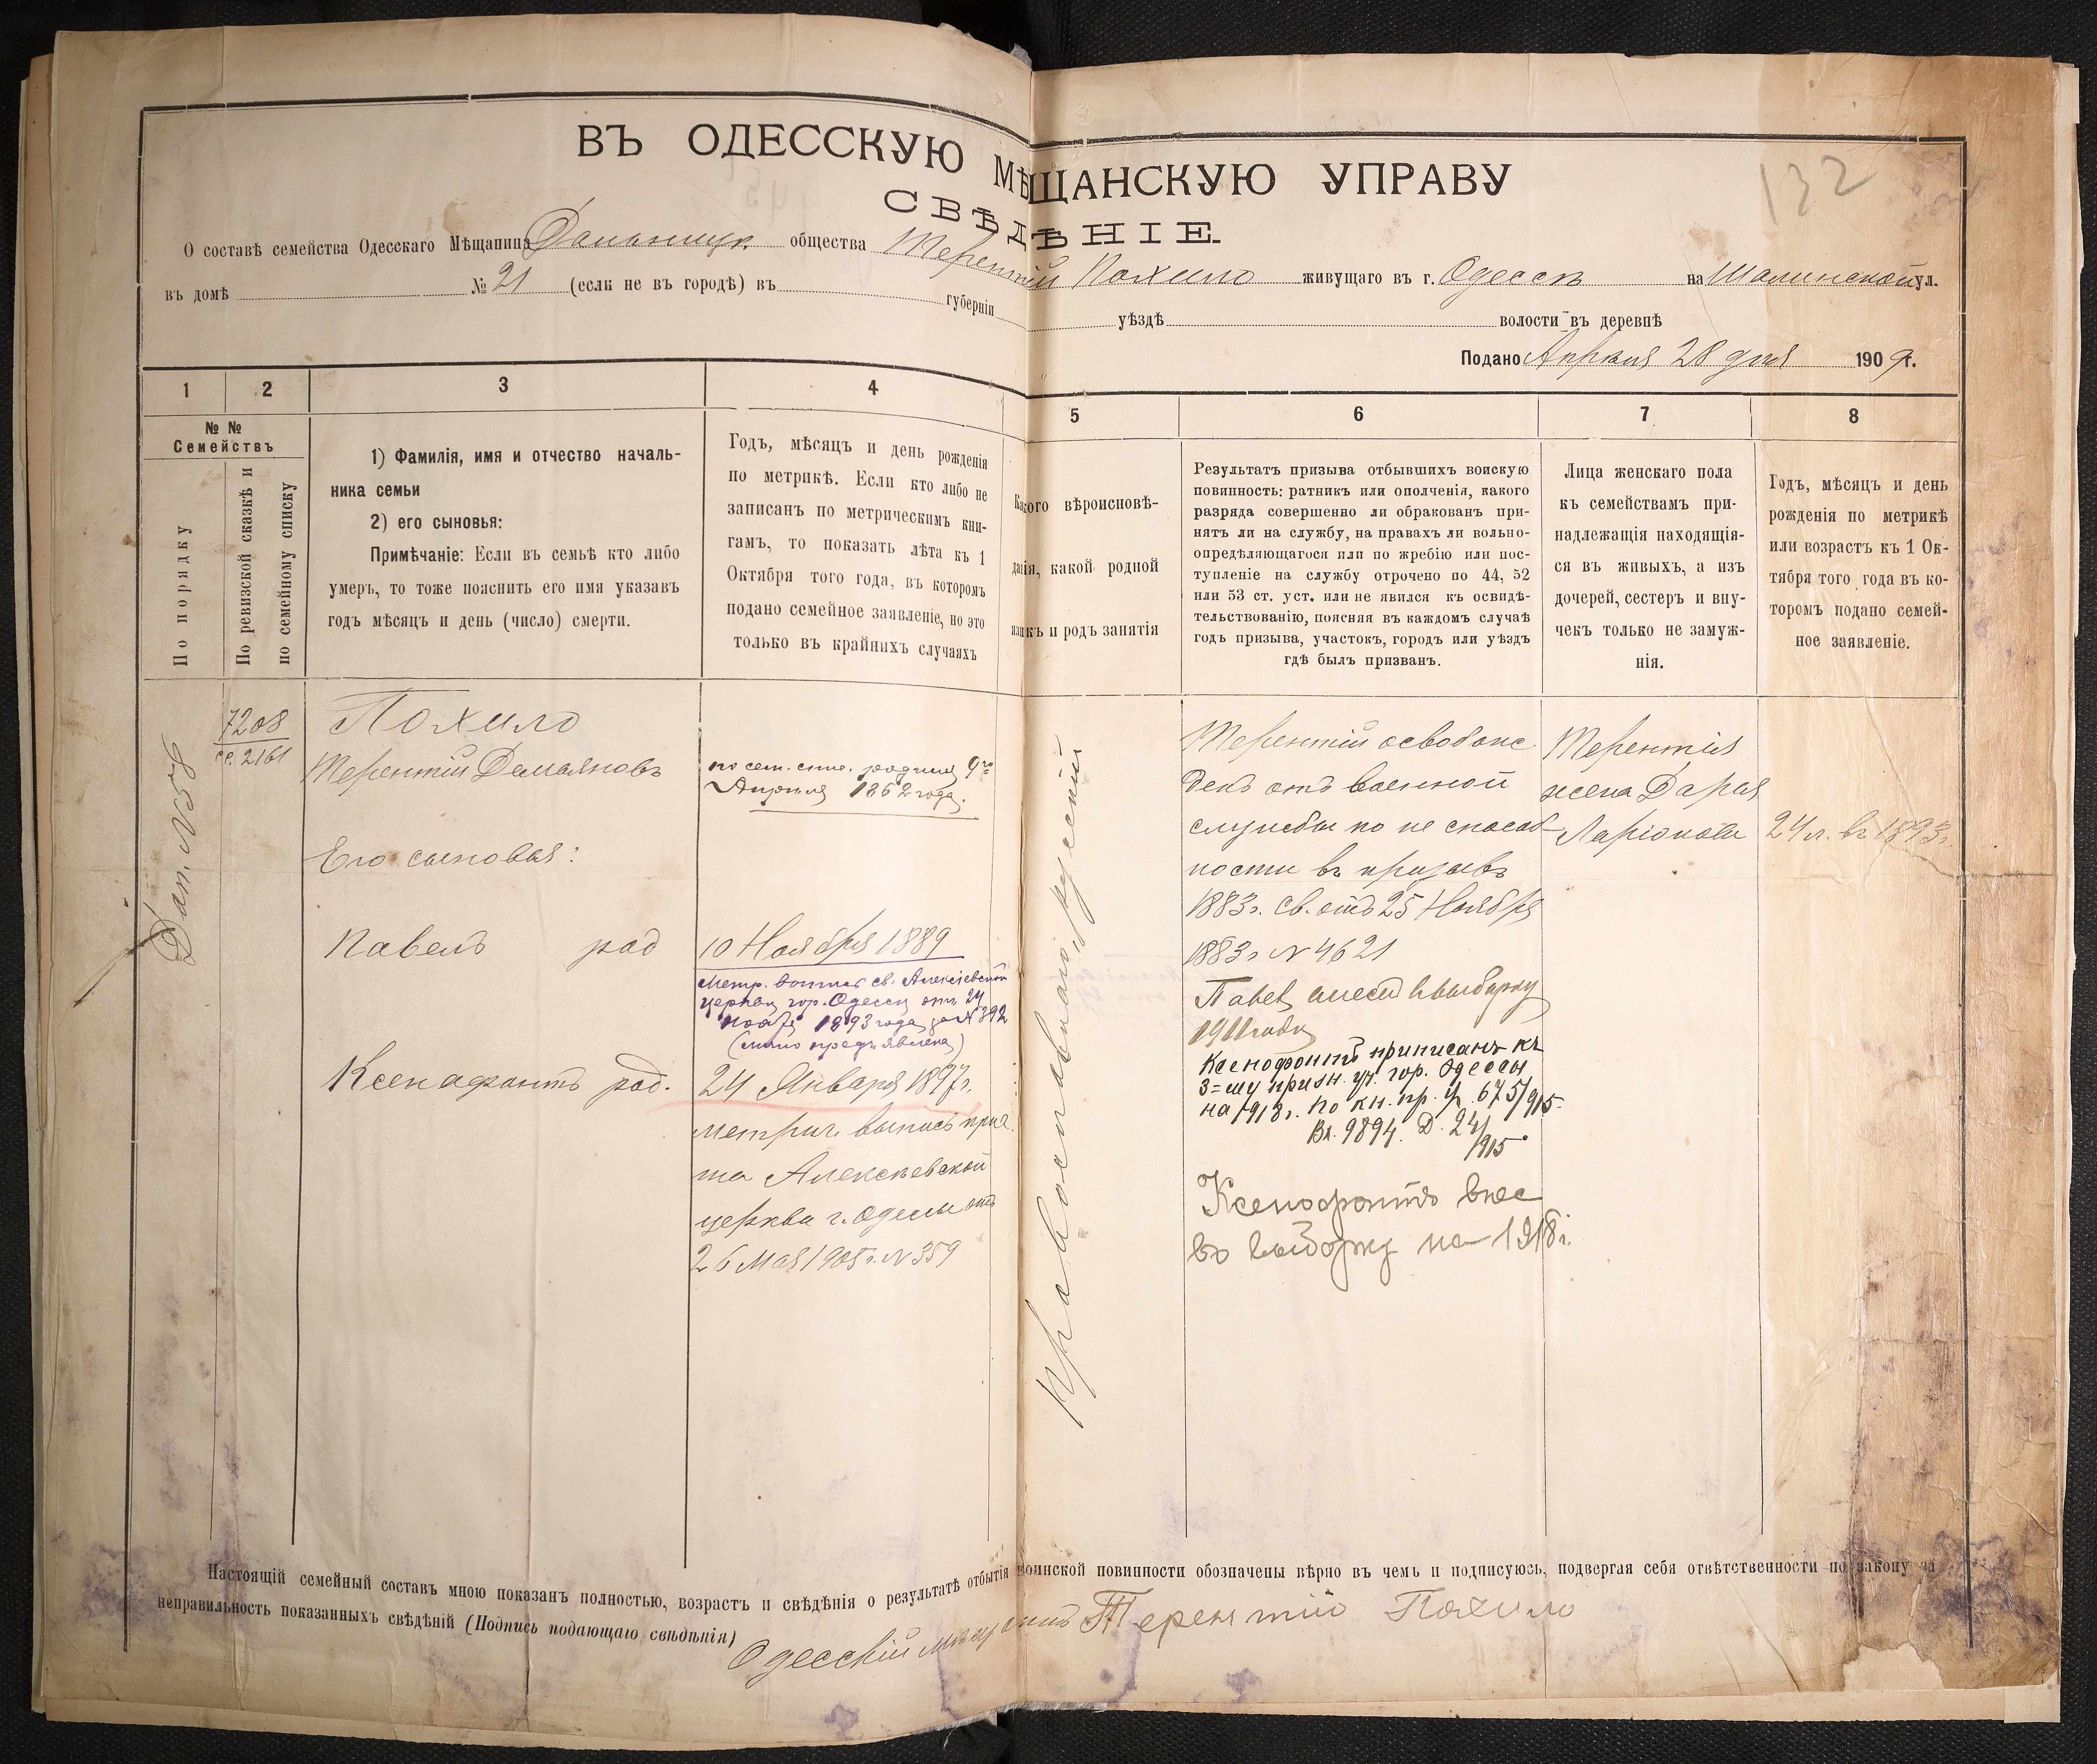 132
ВЪ ОДЕССКУЮ МѢЩАНСКУЮ УПРАВУ
СВѢДѢНІЕ.
О составѣ семейства Одесскаго Мѣщанина Дальницк. общества Терентій Похило живущаго въ г. Одессѣ на ул.
въ домѣ № 21 (если не въ городѣ) въ губерніи уѣздѣ волости въ деревнѣ
Подано Апрѣля 28 дня 1909 г.
1 2 3 4 5 6 7 8
№ №
Семействъ
По порядку
По ревизской сказкѣ и
по семейному списку
1) Фамилія, имя и отчество началь-
ника семьи
2) его сыновья:
Примѣчаніе: Если въ семьѣ кто либо
умеръ, то тоже пояснить его имя указавъ
годъ мѣсяцъ и день (число) смерти.
Годъ, мѣсяцъ и день рожденія
по метрикѣ. Если кто либо не
записанъ по метрическимъ кни-
гамъ, то показать лѣта къ 1
Октября того года, въ которомъ
подано семейное заявленіе, но это
только въ крайнихъ случаяхъ
Какого вѣроисповѣ-
данія, какой родной
языкъ и родъ занятія
Результатъ призыва отбывшихъ воискую
повинность: ратникъ или ополченія, какого
разряда совершенно ли обракованъ при-
нятъ ли на службу, на правахъ ли вольно-
опредѣляющагося или по жребію или пос-
тупленіе на службу отрочено по 44, 52
или 53 ст. уст. или не явился къ освидѣ-
тельствованію, поясняя въ каждомъ случаѣ
годъ призыва, участокъ, городъ или уѣздъ
гдѣ былъ призванъ.
Лица женскаго пола
къ семействамъ при-
надлежащія находящія-
ся въ живыхъ, а изъ
дочерей, сестеръ и вну-
чекъ только не замуж-
нія.
Годъ, мѣсяцъ и день
рожденія по метрикѣ
или возрастъ къ 1 Ок-
тября того года въ ко-
торомъ подано семей-
ное заявленіе.
Дал. N 58
7208
се. 2161
Похило
Терентій Демьяновъ
Его сыновья:
Павелъ род
Ксенафонтъ род.
по сем. спис. родился 9го
Апрѣля 1862 года.
10 Ноября 1889
Метр. выпись св. Алексіевской
церкви гор. Одессы отъ 24
Ноября 1893 года за N 392
(мною предъявлена)
24 Января 1897 г.
метрич. выпись прич
та Алексѣевской
церкви г. Одессы отъ
26 Мая 1905 г. N 359
Православнаго, русскій
Терентій освобож
денъ отъ военной
службы по не способ
ности въ призывъ
1883 г. св. отъ 25 Ноября
1883 г N 4621
Павелъ внесенъ в выборку
1911 года
Ксенофонтъ приписанъ къ
3=му призн. уч. гор. Одессы
на 1918 г. по кн. пр. уч. 675/915.
Вх. 9894. Д. 24/915
Ксенофонтъ внес
въ выборку на 1918 г.
Терентія
жена Дарія
Ларіонова
24 л. въ 1893 г.
Настоящій семейный составъ мною показанъ полностью, возрастъ и свѣдѣнія о результатѣ отбытія воинской повинности обозначены вѣрно въ чемъ и подписуюсь, подвергая себя отвѣтственности по закону за
неправильность показанныхъ свѣдѣній (Подпись подающаго свѣдѣнія)
Одесскій мѣщанинъ Терентій Похило